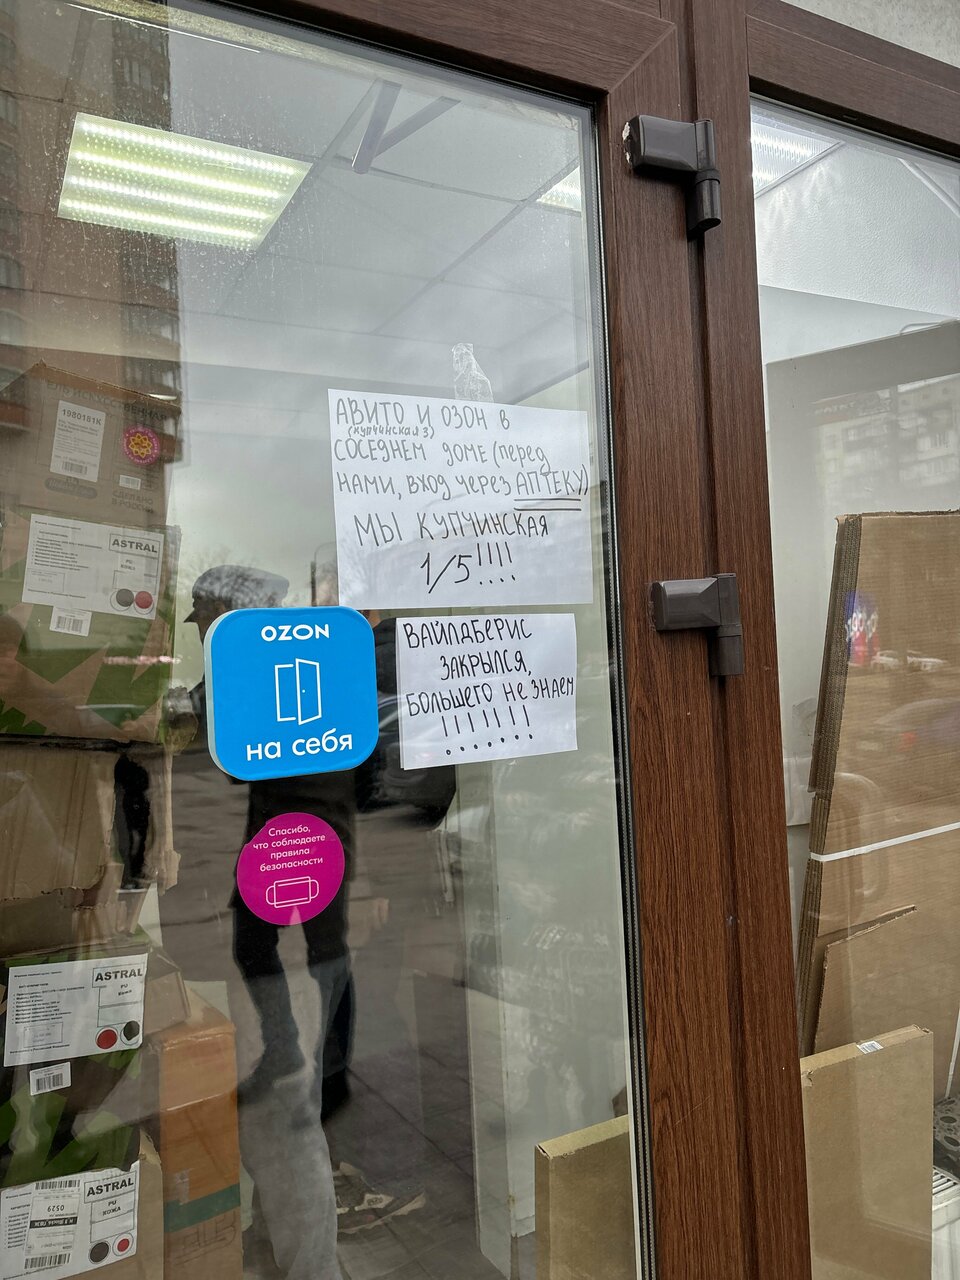 АВИТО И ОЗОН В
(КУПЧИНСКАЯ 3)
СОСЕДНЕМ ДОМЕ (ПЕРЕД
НАМИ, ВХОД ЧЕРЕЗ АПТЕКУ)
МЫ КУПЧИНСКАЯ
1/5!!!!
OZON
на себя
ВАЙЛДБЕРИС
ЗАКРЫЛСЯ,
БОЛЬШЕГО НЕ ЗНАЕМ
!!!!!!!
Спасибо,
что соблюдаете
правила
безопасности
1980181K
СДЕЛАНО
В РОССИИ
ASTRAL
PU
КОЖА
ASTRAL
PU
ASTRAL
PU
КОЖА
0529